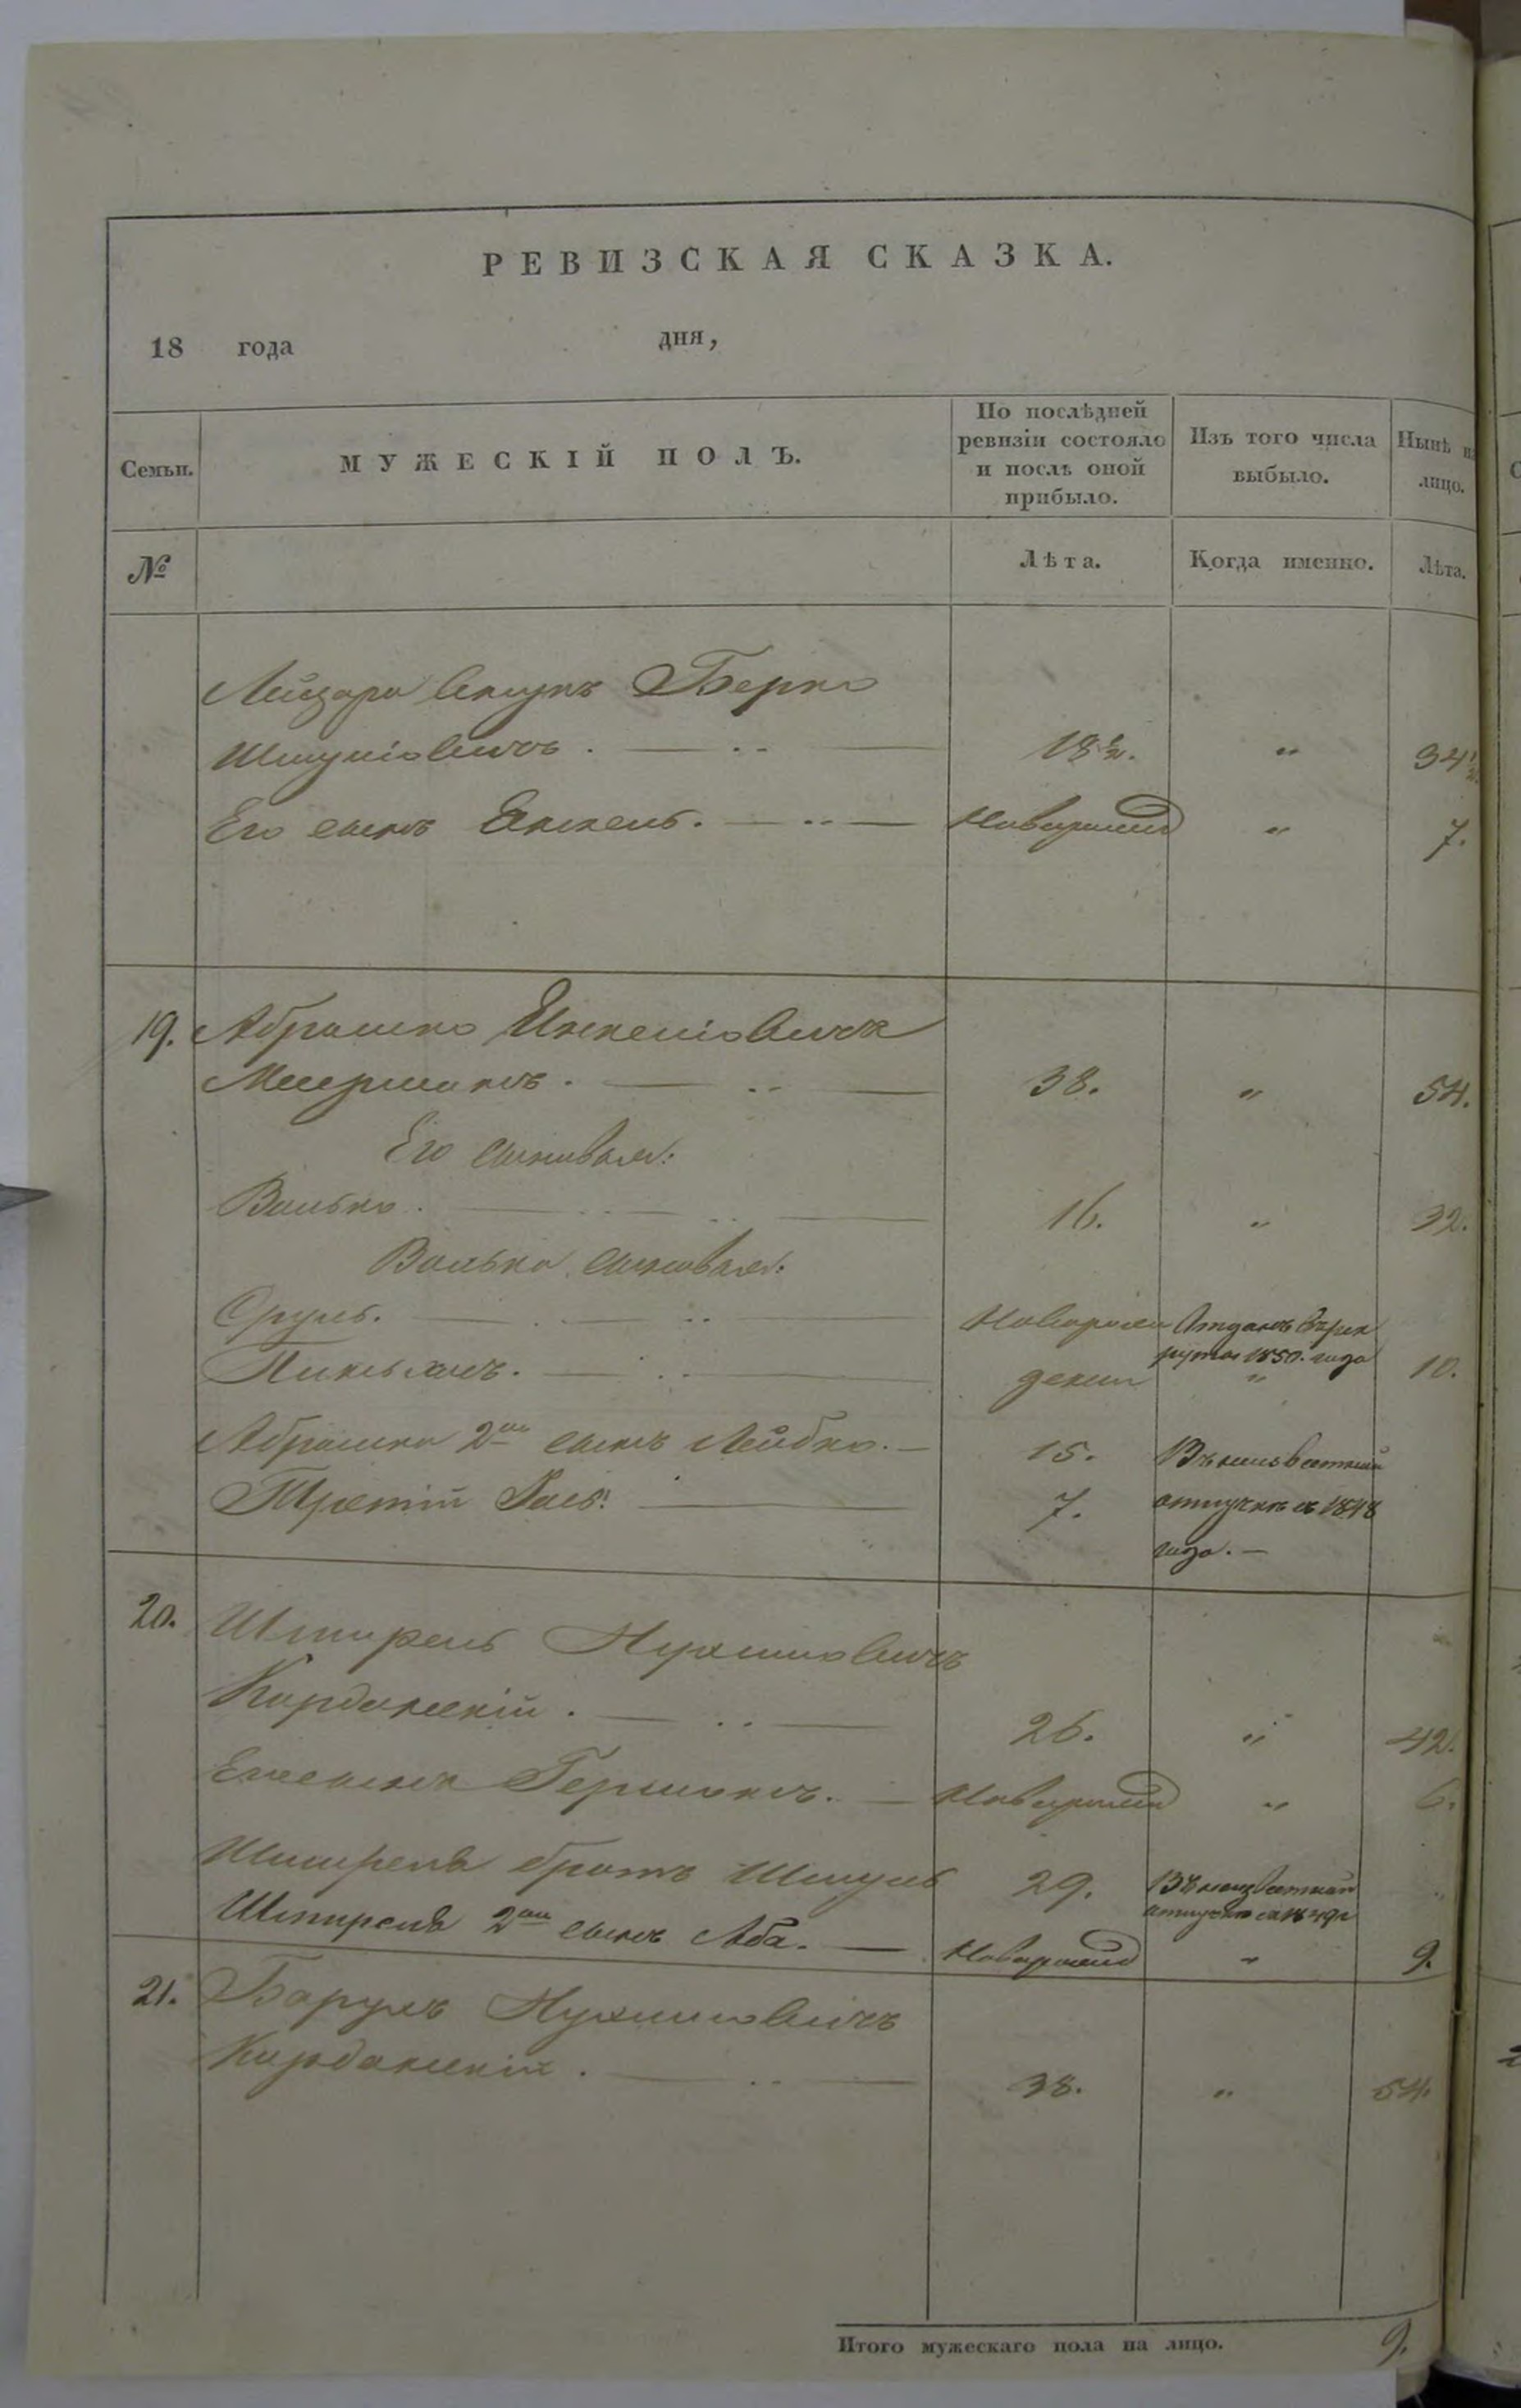 РЕВИЗСКАЯ СКАЗКА.
18 года дня,
Семьи. МУЖЕСКІЙ ПОЛЪ. По послѣдней ревизіи состояло и послѣ оной прибыло. Изъ того числа выбыло. Нынѣ на лицо.
№ Лѣта. Когда именно. Лѣта.
Лейзора внукъ Берко
Шмуліовичъ. 18½. " 34½
Его сынъ Янкель. Новорожд " 7.
19. Абрашко Янкеліовичъ
38. " 54.
Его сыновья:
Волько. 16. " 32.
Волька сыновья:
Сруль. Новорож Отданъ въ рек
руты 1850. года
Пинхасъ. дены " 10.
Абрашка 2й сынъ Лейбко. 15. Въ неизвестной
Третій 7. отлучкѣ съ 1848
года.
20. Шмирель Нухимовичъ
Кордонскій. 26. " 42.
Его сынъ Гершонъ. Новорожд " 6.
Шмиреля братъ Шмуль 29. Въ неизвестной "
отлучкѣ съ 1849 г
Шмиреля 2й сынъ Аба. Новорожд " 9.
21. Борухъ Нухимовичъ
Кордонскій. 38. " 54.
Итого мужескаго пола на лицо. 9.